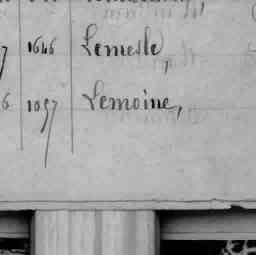 7 1646 Lemesle,
6 1057 Lemoine,